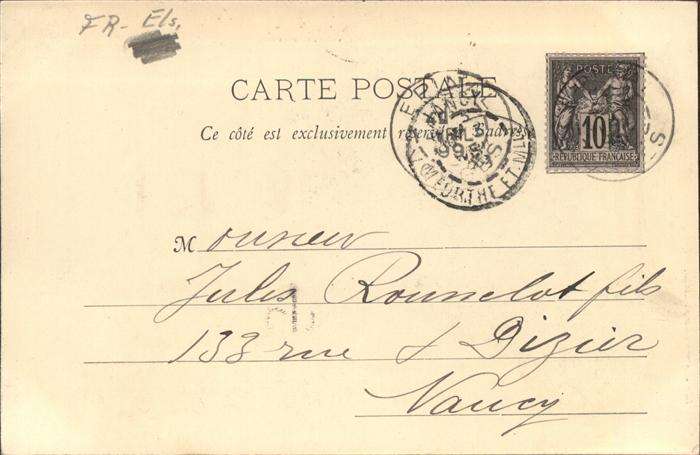 FR- Els.
CARTE POSTALE
Ce côté est exclusivement réservé à l'adresse
POSTE
10
RÉPUBLIQUE FRANÇAISE
NANCY
MEURTHE ET M
Monsieur
Jules Rounelot fils
133 rue St Dizier
Nancy